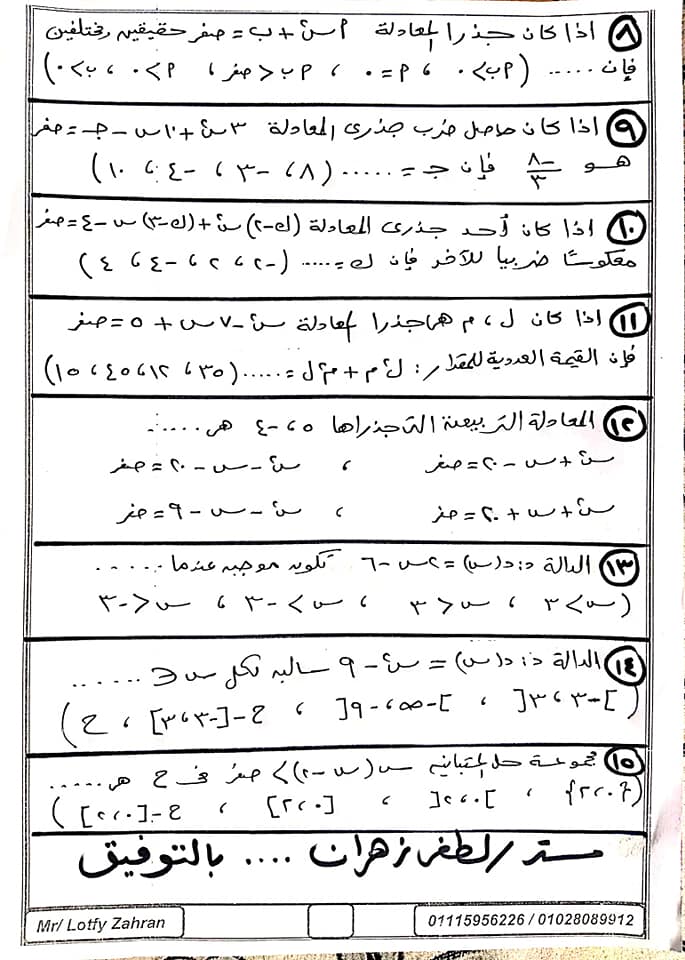 ٨ اذا كان جذرا المعادلة ٢م س٢ + ب = صفر حقيقيين مختلفين
فإن ..... ( ٢م ب > ٠ ، ٢م = ٠ ، ٢م ب < صفر ، ٢م > ٠ ، ب > ٠ )
٩ اذا كان حاصل ضرب جذرى المعادلة ٣س٢ + ١٠س - جـ = صفر
هو -٨/٣ فإن جـ = ..... ( ٨ ، -٣ ، -٤ ، ١٠ )
١٠ اذا كان أحد جذرى المعادلة (ك-٢)س٢ + (ك-٣)س - ٤ = صفر
معكوسًا ضربيا للآخر فإن ك = ..... ( -٢ ، ٢ ، -٤ ، ٤ )
١١ اذا كان ل ، م هما جذرا لمعادلة س٢ - ٧س + ٥ = صفر
فإن القيمة العددية للمقدار : ل٢م + م٢ل = ..... ( ٣٥ ، ١٢ ، ٤٥ ، ١٥ )
١٢ المعادلة التربيعية التى جذراها ٥ ، -٤ هى .....
س٢ + س - ٢٠ = صفر ، س٢ - س - ٢٠ = صفر
س٢ + س + ٢٠ = صفر ، س٢ - س - ٩ = صفر
١٣ الدالة د : د(س) = ٢س - ٦ تكون موجبه عندما .....
( س > ٣ ، س < ٣ ، س > -٣ ، س < -٣
١٤ الدالة د : د(س) = س٢ - ٩ سالبه لكل س ∈ ......
( ]-٣ ، ٣[ ، ]-∞ ، -٩[ ، ح - [-٣ ، ٣] ، ح )
١٥ مجموعة حل المتباينه س(س - ٢) > صفر فى ح هى .....
( {٠ ، ٢} ، ]٠ ، ٢[ ، [٠ ، ٢] ، ح - [٠ ، ٢] )
مستر / لطفى زهران .... بالتوفيق
Mr/ Lotfy Zahran
01115956226 / 01028089912